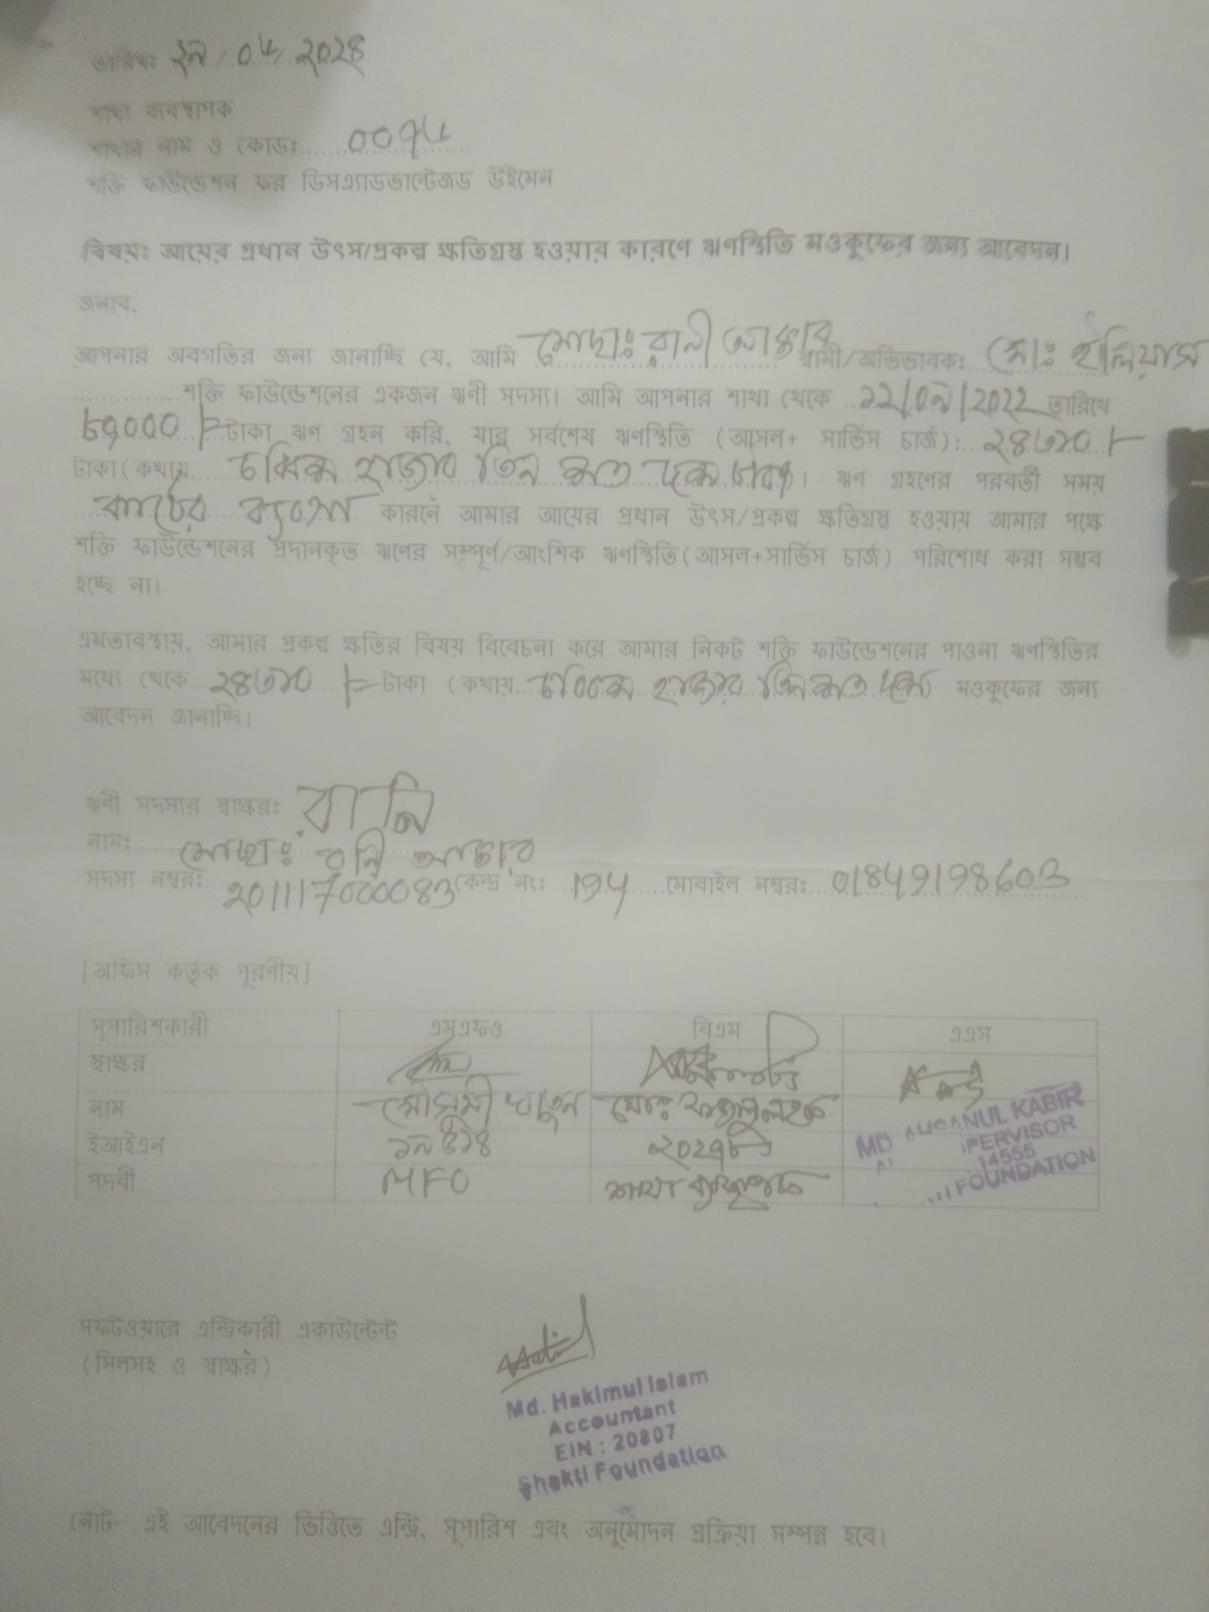 তারিখঃ ২৯/০৫/২০২৪
শাখা ব্যবস্থাপক
শাখার নাম ও কোডঃ...... ০০৭৫
শক্তি ফাউন্ডেশন ফর ডিসএ্যাডভান্টেজড উইমেন
বিষয়ঃ আয়ের প্রধান উৎস/প্রকল্প ক্ষতিগ্রস্ত হওয়ার কারণে ঋণস্থিতি মওকুফের জন্য আবেদন।
জনাব,
আপনার অবগতির জন্য জানাচ্ছি যে, আমি মোছাঃ রানী আক্তার স্বামী/অভিভাবকঃ মোঃ ইলিয়াস
শক্তি ফাউন্ডেশনের একজন ঋণী সদস্য। আমি আপনার শাখা থেকে ২২/০৯/2022 তারিখে
টাকা ঋণ গ্রহন করি, যার সর্বশেষ ঋণস্থিতি (আসল+ সার্ভিস চার্জ): ২৪৩১০/-
টাকা (কথায় চব্বিশ হাজার তিন শত দশ টাকা)। ঋণ গ্রহণের পরবর্তী সময়
কারনে আমার আয়ের প্রধান উৎস/প্রকল্প ক্ষতিগ্রস্ত হওয়ায় আমার পক্ষে
শক্তি ফাউন্ডেশনের প্রদানকৃত ঋণের সম্পূর্ণ/আংশিক ঋণস্থিতি(আসল+সার্ভিস চার্জ) পরিশোধ করা সম্ভব
হচ্ছে না।
এমতাবস্থায়, আমার প্রকল্প ক্ষতির বিষয় বিবেচনা করে আমার নিকট শক্তি ফাউন্ডেশনের পাওনা ঋণস্থিতির
মধ্যে থেকে ২৪৩১০/- টাকা (কথায় চব্বিশ হাজার তিন শত দশ) মওকুফের জন্য
আবেদন জানাচ্ছি।
ঋণী সদস্যর স্বাক্ষরঃ রানি
নামঃ মোছাঃ রানি আক্তার
সদস্য নম্বরঃ ২01117000083 কেন্দ্র নং: 194 মোবাইল নম্বরঃ 01849198603
[অফিস কর্তৃক পূরণীয়]
সুপারিশকারী এমএফও বিএম এএস
স্বাক্ষর
নাম মৌসুমী খাতুন মোঃ
ইআইএন
পদবী MFO শাখা ব্যবস্থাপক
KABIR
14555
FOUNDATION
সফটওয়ারে এন্ট্রিকারী একাউন্টেন্ট
(সিলসহ ও স্বাক্ষর)
Md. Hakimul Islam
Accountant
EIN : 20807
Shakti Foundation
নোট- এই আবেদনের ভিত্তিতে এন্ট্রি, সুপারিশ এবং অনুমোদন প্রক্রিয়া সম্পন্ন হবে।